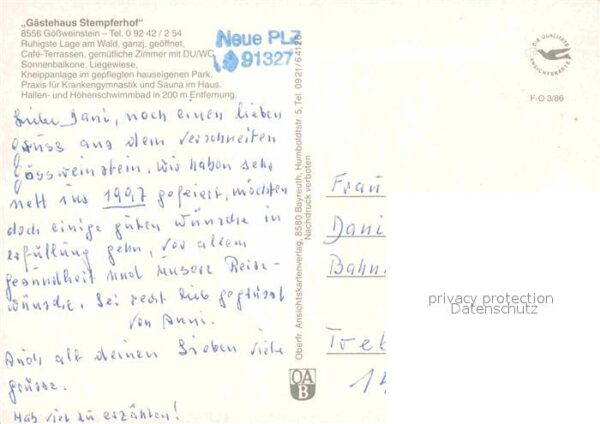 „Gästehaus Stempferhof“
8556 Gößweinstein – Tel. 0 92 42 / 2 54
Ruhigste Lage am Wald, ganzj. geöffnet,
Café-Terrassen, gemütliche Zimmer mit DU/WC,
Sonnenbalkone, Liegewiese,
Kneippanlage im gepflegten hauseigenen Park.
Praxis für Krankengymnastik und Sauna im Haus.
Hallen- und Höhenschwimmbad in 200 m Entfernung.
Neue PLZ
91327
Liebe Dani, noch einen lieben
Gruss aus dem verschneiten
Gössweinstein. Wir haben sehr
nett ins 1997 gefeiert, möchten
doch einige guten Wünsche in
erfüllung gehn, vor allem
gesundheit und unsere Reise-
wünsche. Sei recht lieb gegrüsst
von Anni.
Auch all deinen Lieben viele
grüsse.
Hab viel zu erzählen!
Oberfr. Ansichtskartenverlag, 8580 Bayreuth, Humboldtstr. 5, Tel. 0921/64126
Nachdruck verboten
OA
B
DIE QUALITÄTS
ANSICHTSKARTE
F-O 3/86
Frau
Dani
Bahn
Tret
privacy protection
Datenschutz